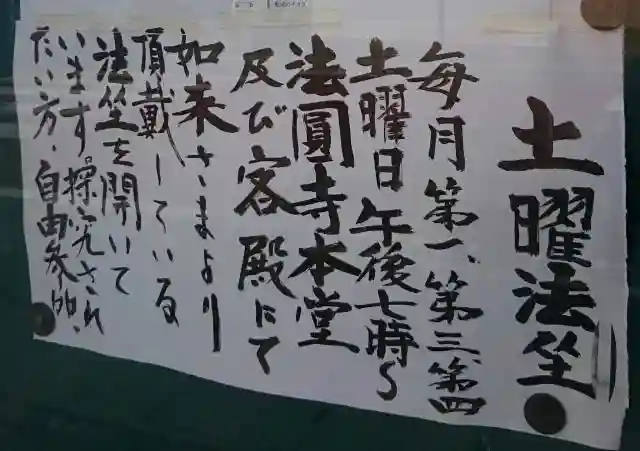 土曜法坐
毎月第一、第三、第四
土曜日午後七時〜
法圓寺本堂
及び客殿にて
如来さまより
頂戴している
法坐を開いて
います。探究され
たい方、自由参加、